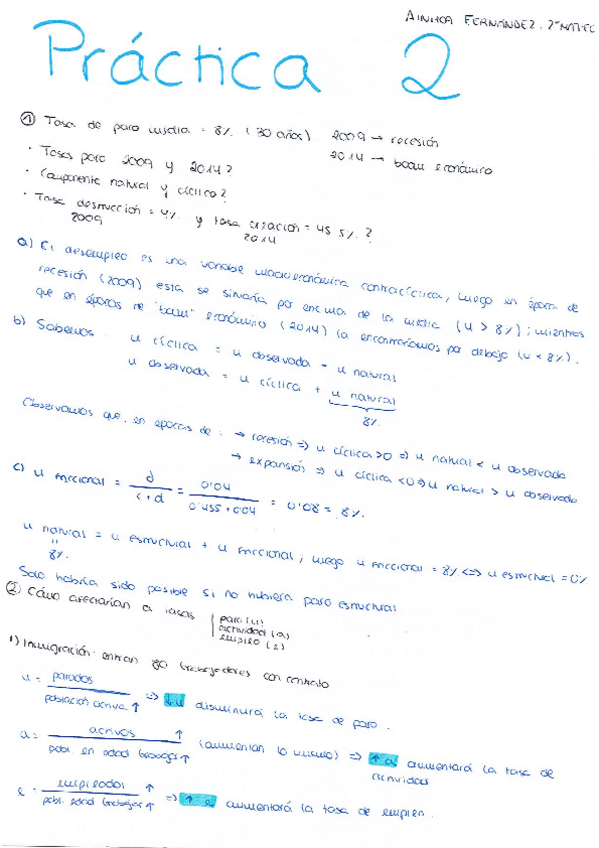 AINHOA FERNÁNDEZ. 2º
Práctica 2
① Tasa de paro media = 8%. (30 años) 2009 → recesión
2014 → boom económico
· Tasas paro 2009 y 2014?
· Componente natural y cíclica?
· Tasa destrucción = 4%. y tasa creación = 45'5%.?
2009 2014
a) El desempleo es una variable macroeconómica contracíclica, luego en épocas de
recesión (2009) esta se situaría por encima de la media (u > 8%); mientras
que en épocas de "boom" económico (2014) la encontraríamos por debajo (u < 8%).
b) Sabemos: u cíclica = u observada - u natural
u observada = u cíclica + u natural
8%.
Observamos que, en épocas de: → recesión => u cíclica >0 => u natural < u observada
→ expansión => u cíclica <0 => u natural > u observada
c) u friccional = d / c+d = 0'04 / 0'455+0'04 = 0'08 = 8%.
u natural = u estructural + u friccional, luego u friccional = 8% <=> u estructural = 0%
"
8%.
Solo habría sido posible si no hubiera paro estructural
② Cómo afectarían a tasas | paro (u)
actividad (a)
empleo (e)
1) Inmigración: entran 80 trabajadores con contrato
u = parados / población activa ↑ => ↓u disminuirá la tasa de paro.
a = activos ↑ / pobl. en edad trabajar ↑ (aumentan lo mismo) => ↑ a aumentará la tasa de
actividad
e = empleados ↑ / pobl. edad trabajar ↑ => ↑ e aumentará la tasa de empleo.